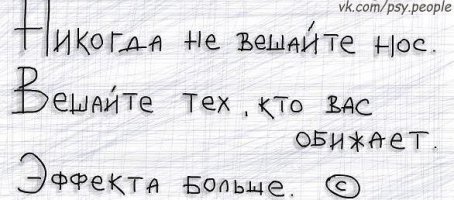 vk.com/psy.people
Никогда не вешайте нос.
Вешайте тех, кто вас
обижает.
Эффекта больше. ©